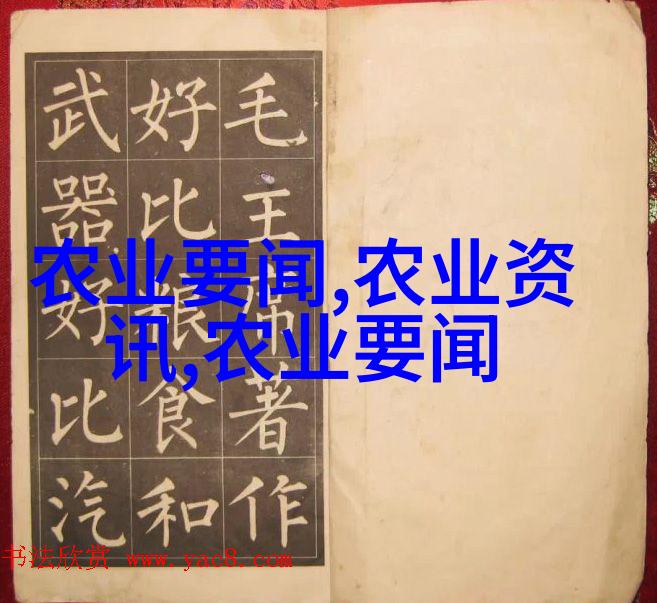 毛主席著作
好比粮食和
武器好比汽
农业要闻,农业资
讯,农业要闻
书法欣赏 www.yac8.com